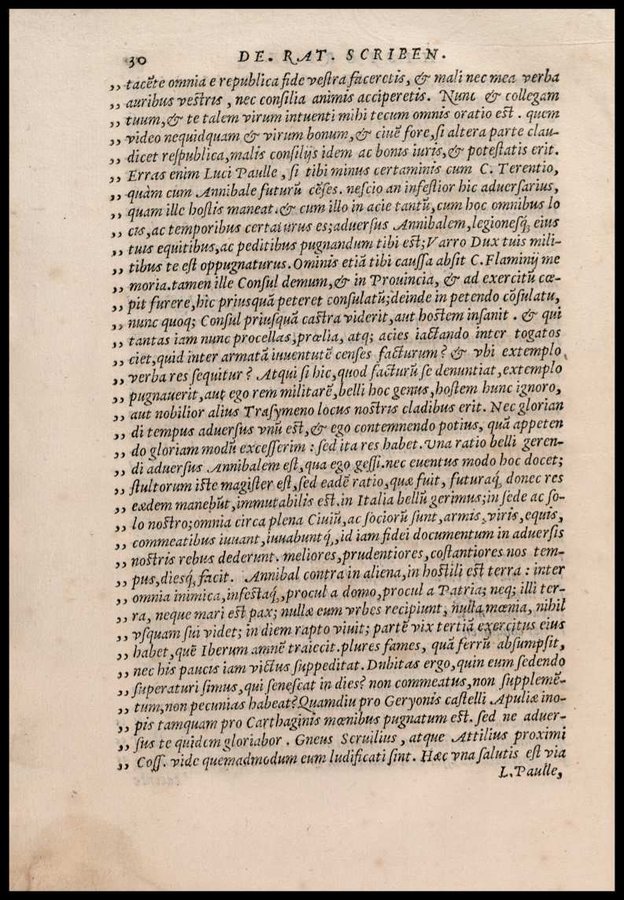 30 DE. RAT. SCRIBEN.
,, tacẽte omnia e republica fide vestra faceretis, & mali nec mea verba
,, auribus vestris, nec consilia animis acciperetis. Nunc & collegam
,, tuum, & te talem virum intuenti mihi tecum omnis oratio est. quem
,, video nequidquam & virum bonum, & ciuẽ fore, si altera parte clau-
,, dicet respublica, malis consilijs idem ac bonis iuris, & potestatis erit.
,, Erras enim Luci Paulle, si tibi minus certaminis cum C. Terentio,
,, quàm cum Annibale futurũ cẽses. nescio an infestior hic aduersarius,
,, quam ille hostis maneat. & cum illo in acie tantũ, cum hoc omnibus lo
,, cis, ac temporibus certaturus es; aduersus Annibalem, legionesq́; eius
,, tuis equitibus, ac peditibus pugnandum tibi est; Varro Dux tuis mili-
,, tibus te est oppugnaturus. Ominis etiã tibi caussa absit C. Flaminij me
,, moria. tamen ille Consul demum, & in Prouincia, & ad exercitũ cœ-
,, pit furere, hic priusquã peteret consulatũ; deinde in petendo cõsulatu,
,, nunc quoq; Consul priusquã castra viderit, aut hostem insanit. & qui
,, tantas iam nunc procellas, prœlia, atq; acies iactando inter togatos
,, ciet, quid inter armatã iuuentutẽ censes facturum? & vbi extemplo
,, verba res sequitur? Atqui si hic, quod facturũ se denuntiat, extemplo
,, pugnauerit, aut ego rem militarẽ, belli hoc genus, hostem hunc ignoro,
,, aut nobilior alius Trasymeno locus nostris cladibus erit. Nec glorian
,, di tempus aduersus vnũ est, & ego contemnendo potius, quã appeten
,, do gloriam modũ excesserim: sed ita res habet. Vna ratio belli geren-
,, di aduersus Annibalem est, qua ego gessi. nec euentus modo hoc docet;
,, stultorum iste magister est, sed eadẽ ratio, quæ fuit, futuraq́, donec res
,, eædem manebũt, immutabilis est. in Italia bellũ gerimus; in sede ac so-
,, lo nostro; omnia circa plena Ciuiũ, ac sociorũ sunt, armis, viris, equis,
,, commeatibus iuuant, iuuabuntq́, id iam fidei documentum in aduersis
,, nostris rebus dederunt. meliores, prudentiores, cõstantiores nos tem-
,, pus, diesq́, facit. Annibal contra in aliena, in hostili est terra: inter
,, omnia inimica, infestaq́, procul a domo, procul a Patria; neq; illi ter-
,, ra, neque mari est pax; nullæ eum vrbes recipiunt, nulla mœnia, nihil
,, vsquam sui videt; in diem rapto viuit; partẽ vix tertiã exercitus eius
,, habet, quẽ Iberum amnẽ traiecit. plures fames, quã ferrũ absumpsit,
,, nec his paucis iam victus suppeditat. Dubitas ergo, quin eum sedendo
,, superaturi simus, qui senescat in dies? non commeatus, non supplemẽ-
,, tum, non pecunias habeat? Quamdiu pro Geryonis castelli Apuliæ ino-
,, pis tamquam pro Carthaginis mœnibus pugnatum est. sed ne aduer-
,, sus te quidem gloriabor. Gneus Seruilius, atque Attilius proximi
,, Coss. vide quemadmodum eum ludificati sint. Hæc vna salutis est via
L. Paulle,